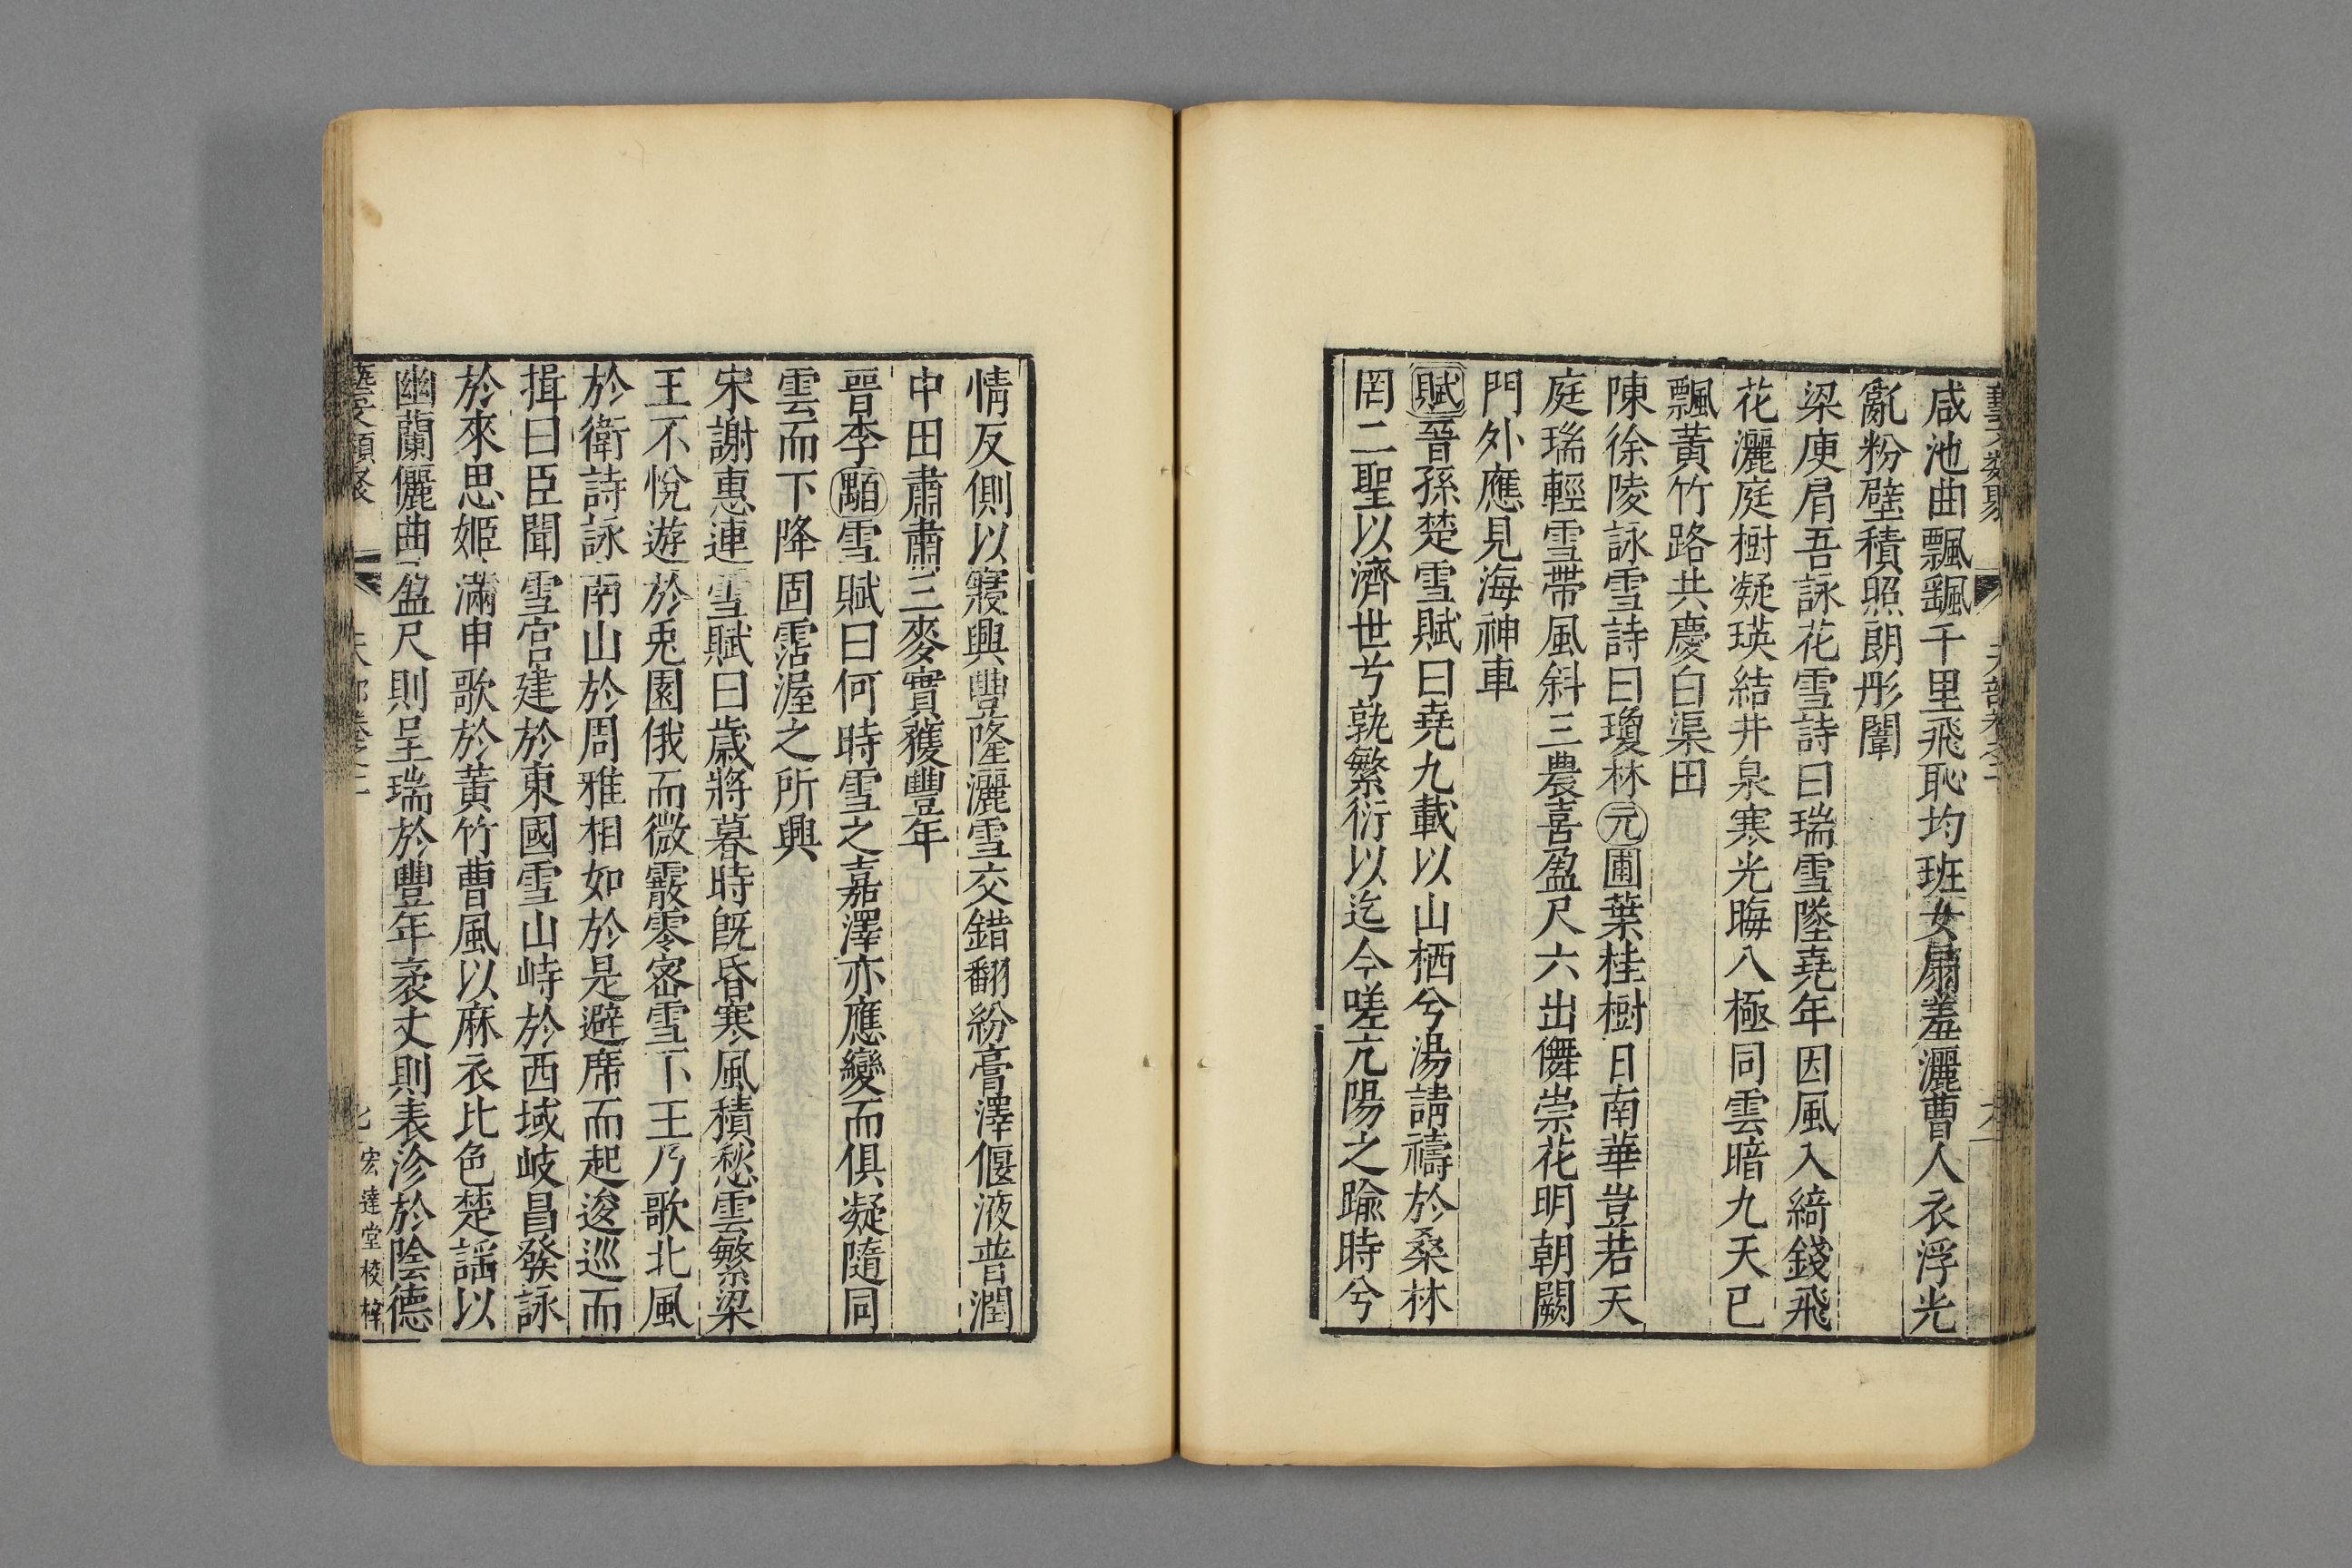 咸池曲飄颻千里飛恥均班女扇羞灑曹人衣浮光
亂粉壁積照朗彤闈
梁庾肩吾詠花雪詩曰瑞雪墜堯年因風入綺錢飛
花灑庭樹凝瑛結井泉寒光晦八極同雲暗九天已
飄黃竹路共慶白渠田
陳徐陵詠雪詩曰瓊林元圃葉桂樹日南華豈若天
庭瑞輕雪帶風斜三農喜盈尺六出儛崇花明朝闕
門外應見海神車
賦晉孫楚雪賦曰堯九載以山栖兮湯請禱於桑林
罔二聖以濟世兮孰繁衍以迄今嗟亢陽之踰時兮
情反側以寢興豐隆灑雪交錯翻紛膏澤偃液普潤
中田肅肅三麥實穫豐年
晉李顒雪賦曰何時雪之嘉澤亦應變而俱凝隨同
雲而下降固霑渥之所興
宋謝惠連雪賦曰歲將暮時旣昏寒風積愁雲繁梁
王不悅遊於兎園俄而微霰零密雪下王乃歌北風
於衛詩詠南山於周雅相如於是避席而起逡巡而
揖曰臣聞雪宮建於東國雪山峙於西域岐昌發詠
於來思姬滿申歌於黃竹曹風以麻衣比色楚謡以
幽蘭儷曲盈尺則呈瑞於豐年袤丈則表沴於陰德
藝文類聚
宏達堂校梓